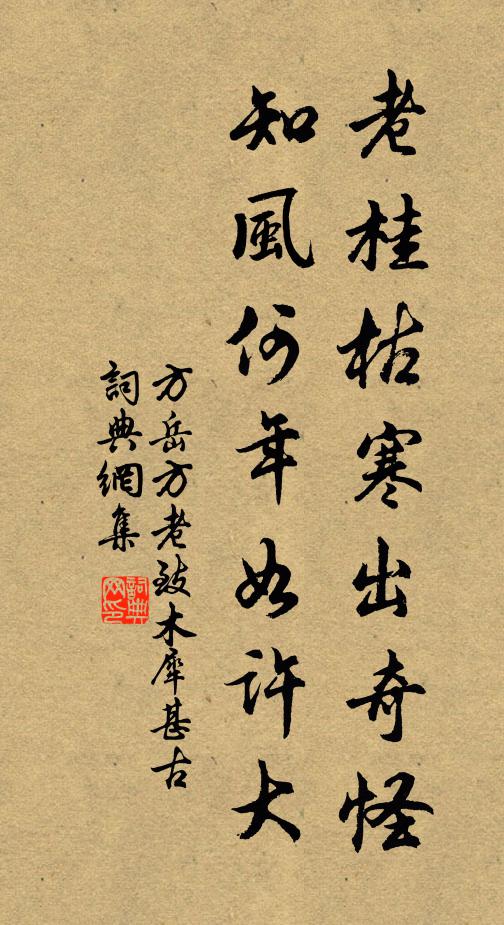 老桂枯寒出奇怪
知風何年如許大
方岳方老致木犀甚古
詞典網集
詞典网印